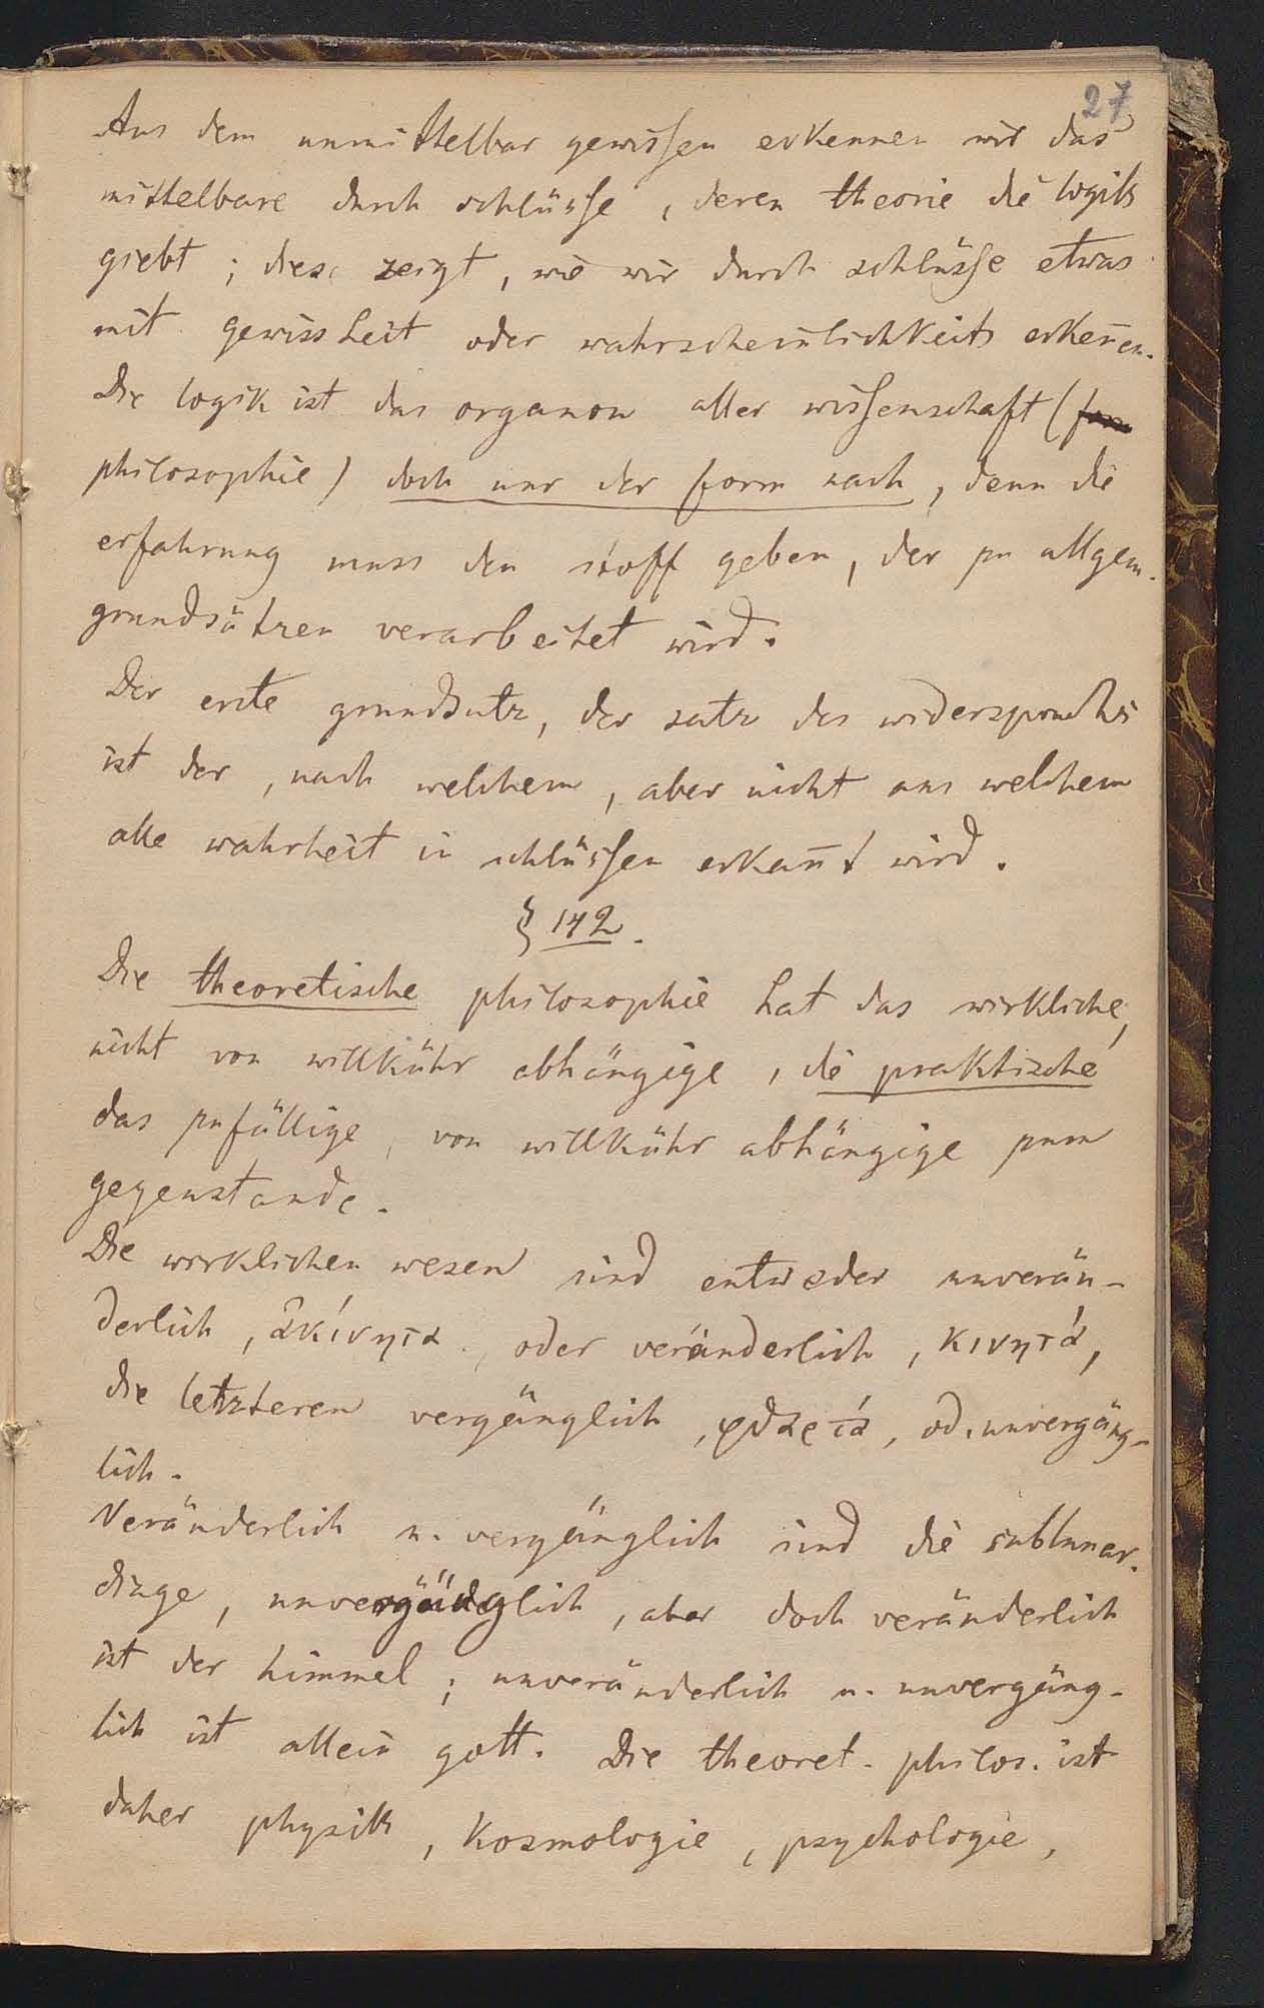 27
Aus dem unmittelbar gewissen erkennen wir das
mittelbare durch schlüsse, deren theorie die logik
giebt; diese zeigt, wie wir durch schlüsse etwas
mit gewissheit oder wahrscheinlichkeit erkeñen.
Die logik ist das organon aller wissenschaft (
philosophie) doch nur der form nach, denn die
erfahrung muss den stoff geben, der zu allgem.
grundsätzen verarbeitet wird.
Der erste grundsatz, der satz des widerspruches
ist der, nach welchem, aber nicht aus welchem
alle wahrheit in schlüssen erkañt wird.
§ 142.
Die theoretische philosophie hat das wirkliche,
nicht von willkühr abhängige, die praktische
das zufällige, von willkühr abhängige zum
gegenstande.
Die wirklichen wesen sind entweder unverän-
derlich, ἀκίνητα, oder veränderlich, κινητά,
die letzteren vergänglich, φθαρτά, od. unvergäng-
lich.
Veränderlich u. vergänglich sind die sublunar.
dinge, unvergänglich, aber doch veränderlich
ist der himmel; unveränderlich u. unvergäng-
lich ist allein gott. Die theoret. philos. ist
daher physik, kosmologie, psychologie,